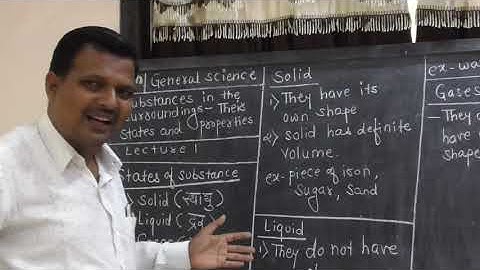 General science
Substances in the
surroundings - Their
states and properties
Lecture 1
States of substance
Solid (स्थायु)
Liquid (द्रव
Solid
1) They have its
own shape
2) Solid has definite
volume.
ex-piece of iron,
Sugar, Sand
Liquid
1) They do not have
ex-wa
Gases
- They d
have
shape